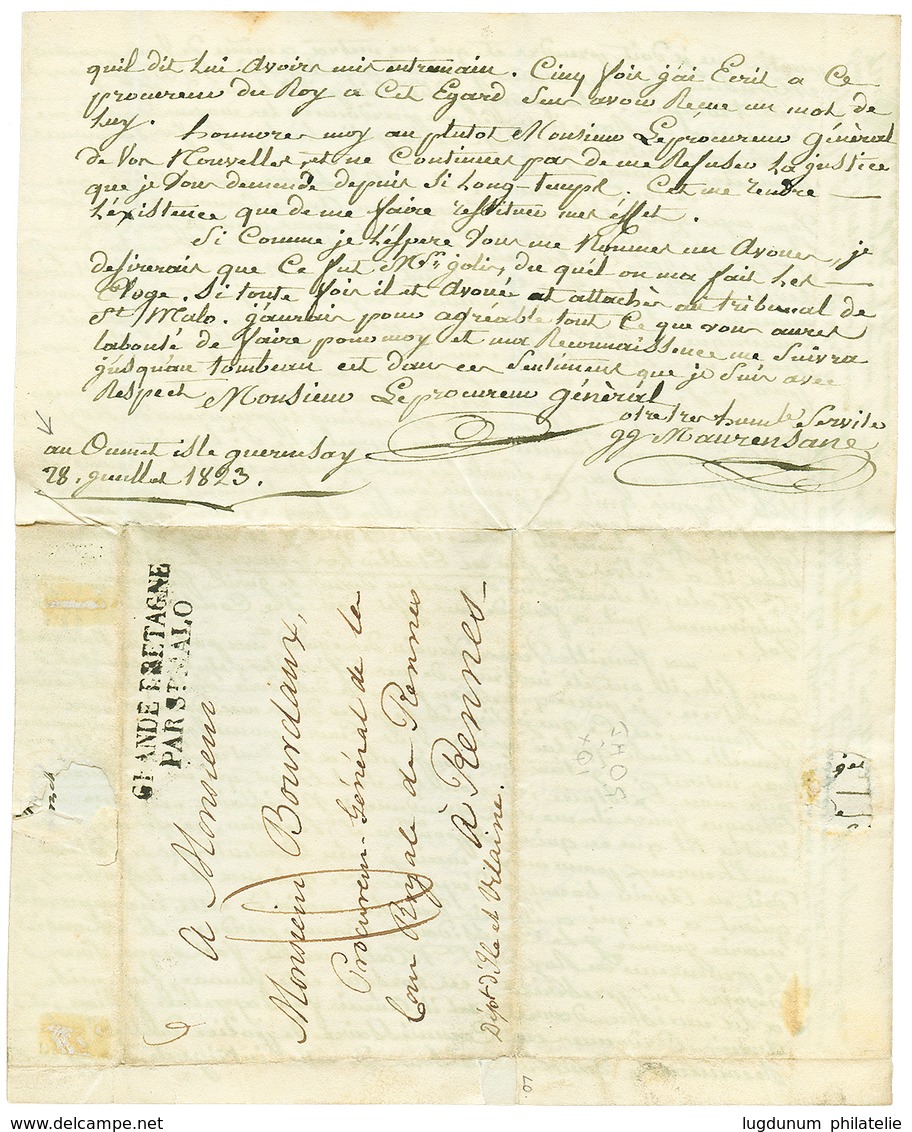 quil dit lui Avoirs mis entremain. Cinq fois j'ai Ecrit a Ce
procureur du Roy a Cet Egard sans avoir Reçue un mot de
luy.
honnorer moy au plutot Monsieur Leprocureur général
de Vos Nouvelles, et ne Continuer pas de me Refuser La justice
que je Vous demende depuis si Long-temps. Cet me rendre
L'éxistence que de me faire restituer mes éffet.
Si Comme je L'éspere Vous me Nommer un Avouer, je
desirerais que Ce fut Mr jolis, du quél on ma fait Les
Eloge. Si toute fois il et Avoué et attachér au tribunal de
St Malo. j'aurais pour agreable tout Ce que vous aurer
labonté de faire pour moy et ma Reconnaissence me Suivra
jusqu'au tombeau est dans ces Sentiment que je Suis avec
Respect Monsieur Leprocureur général
otre tres humble Servite
gg Maurensane
au Oumet isle guernsay
28. juillet 1823.
GRANDE BRETAGNE
PAR ST. MALO
A Monsieur
Monsieur Bourdaux,
Procureur-Général de la
Cour Royale de Rennes
à Rennes
Dépt d'Ile et Vilaine.
07
lugdunum philatelie